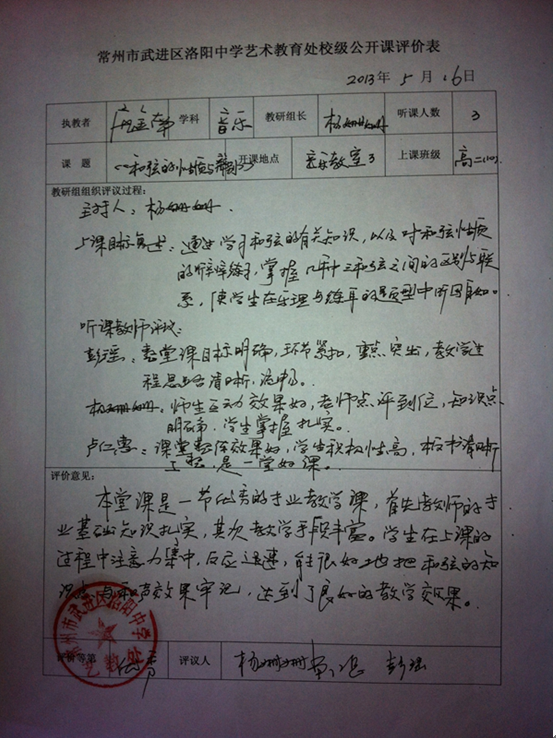 常州市武进区洛阳中学艺术教育处校级公开课评价表
2013年5月16日
执教者 学科 音乐 教研组长 杨姗姗 听课人数 3
课题 《和弦的性质与 》 开课地点 音乐教室3 上课班级 高二
教研组组织评议过程:
主持人:杨姗姗.
上课目标复述:通过学习和弦的有关知识,以及对和弦性质
的听辨练习,掌握 三和弦之间的区别与联
系,使学生在乐理与练耳的题型中听用自如。
听课教师评议:
彭瑶:整堂课目标明确,环节紧扣,重点突出,教学过
程思路清晰,流畅。
杨姗姗:师生互动效果好,老师点评到位,知识点
明确,学生掌握扎实。
卢仁惠:课堂整体效果好,学生积极性高,板书清晰
了然,是一堂好课。
评价意见:
本堂课是一节优秀的专业教学课,首先教师的专
业基础知识扎实,其次教学手段丰富。学生在上课的
过程中注意力集中,反应迅速,能很好地把和弦的知
识 与和声效果牢记,达到了良好的教学效果。
常州市武进区洛阳中学
评价等第 优秀 评议人 杨姗姗 彭瑶